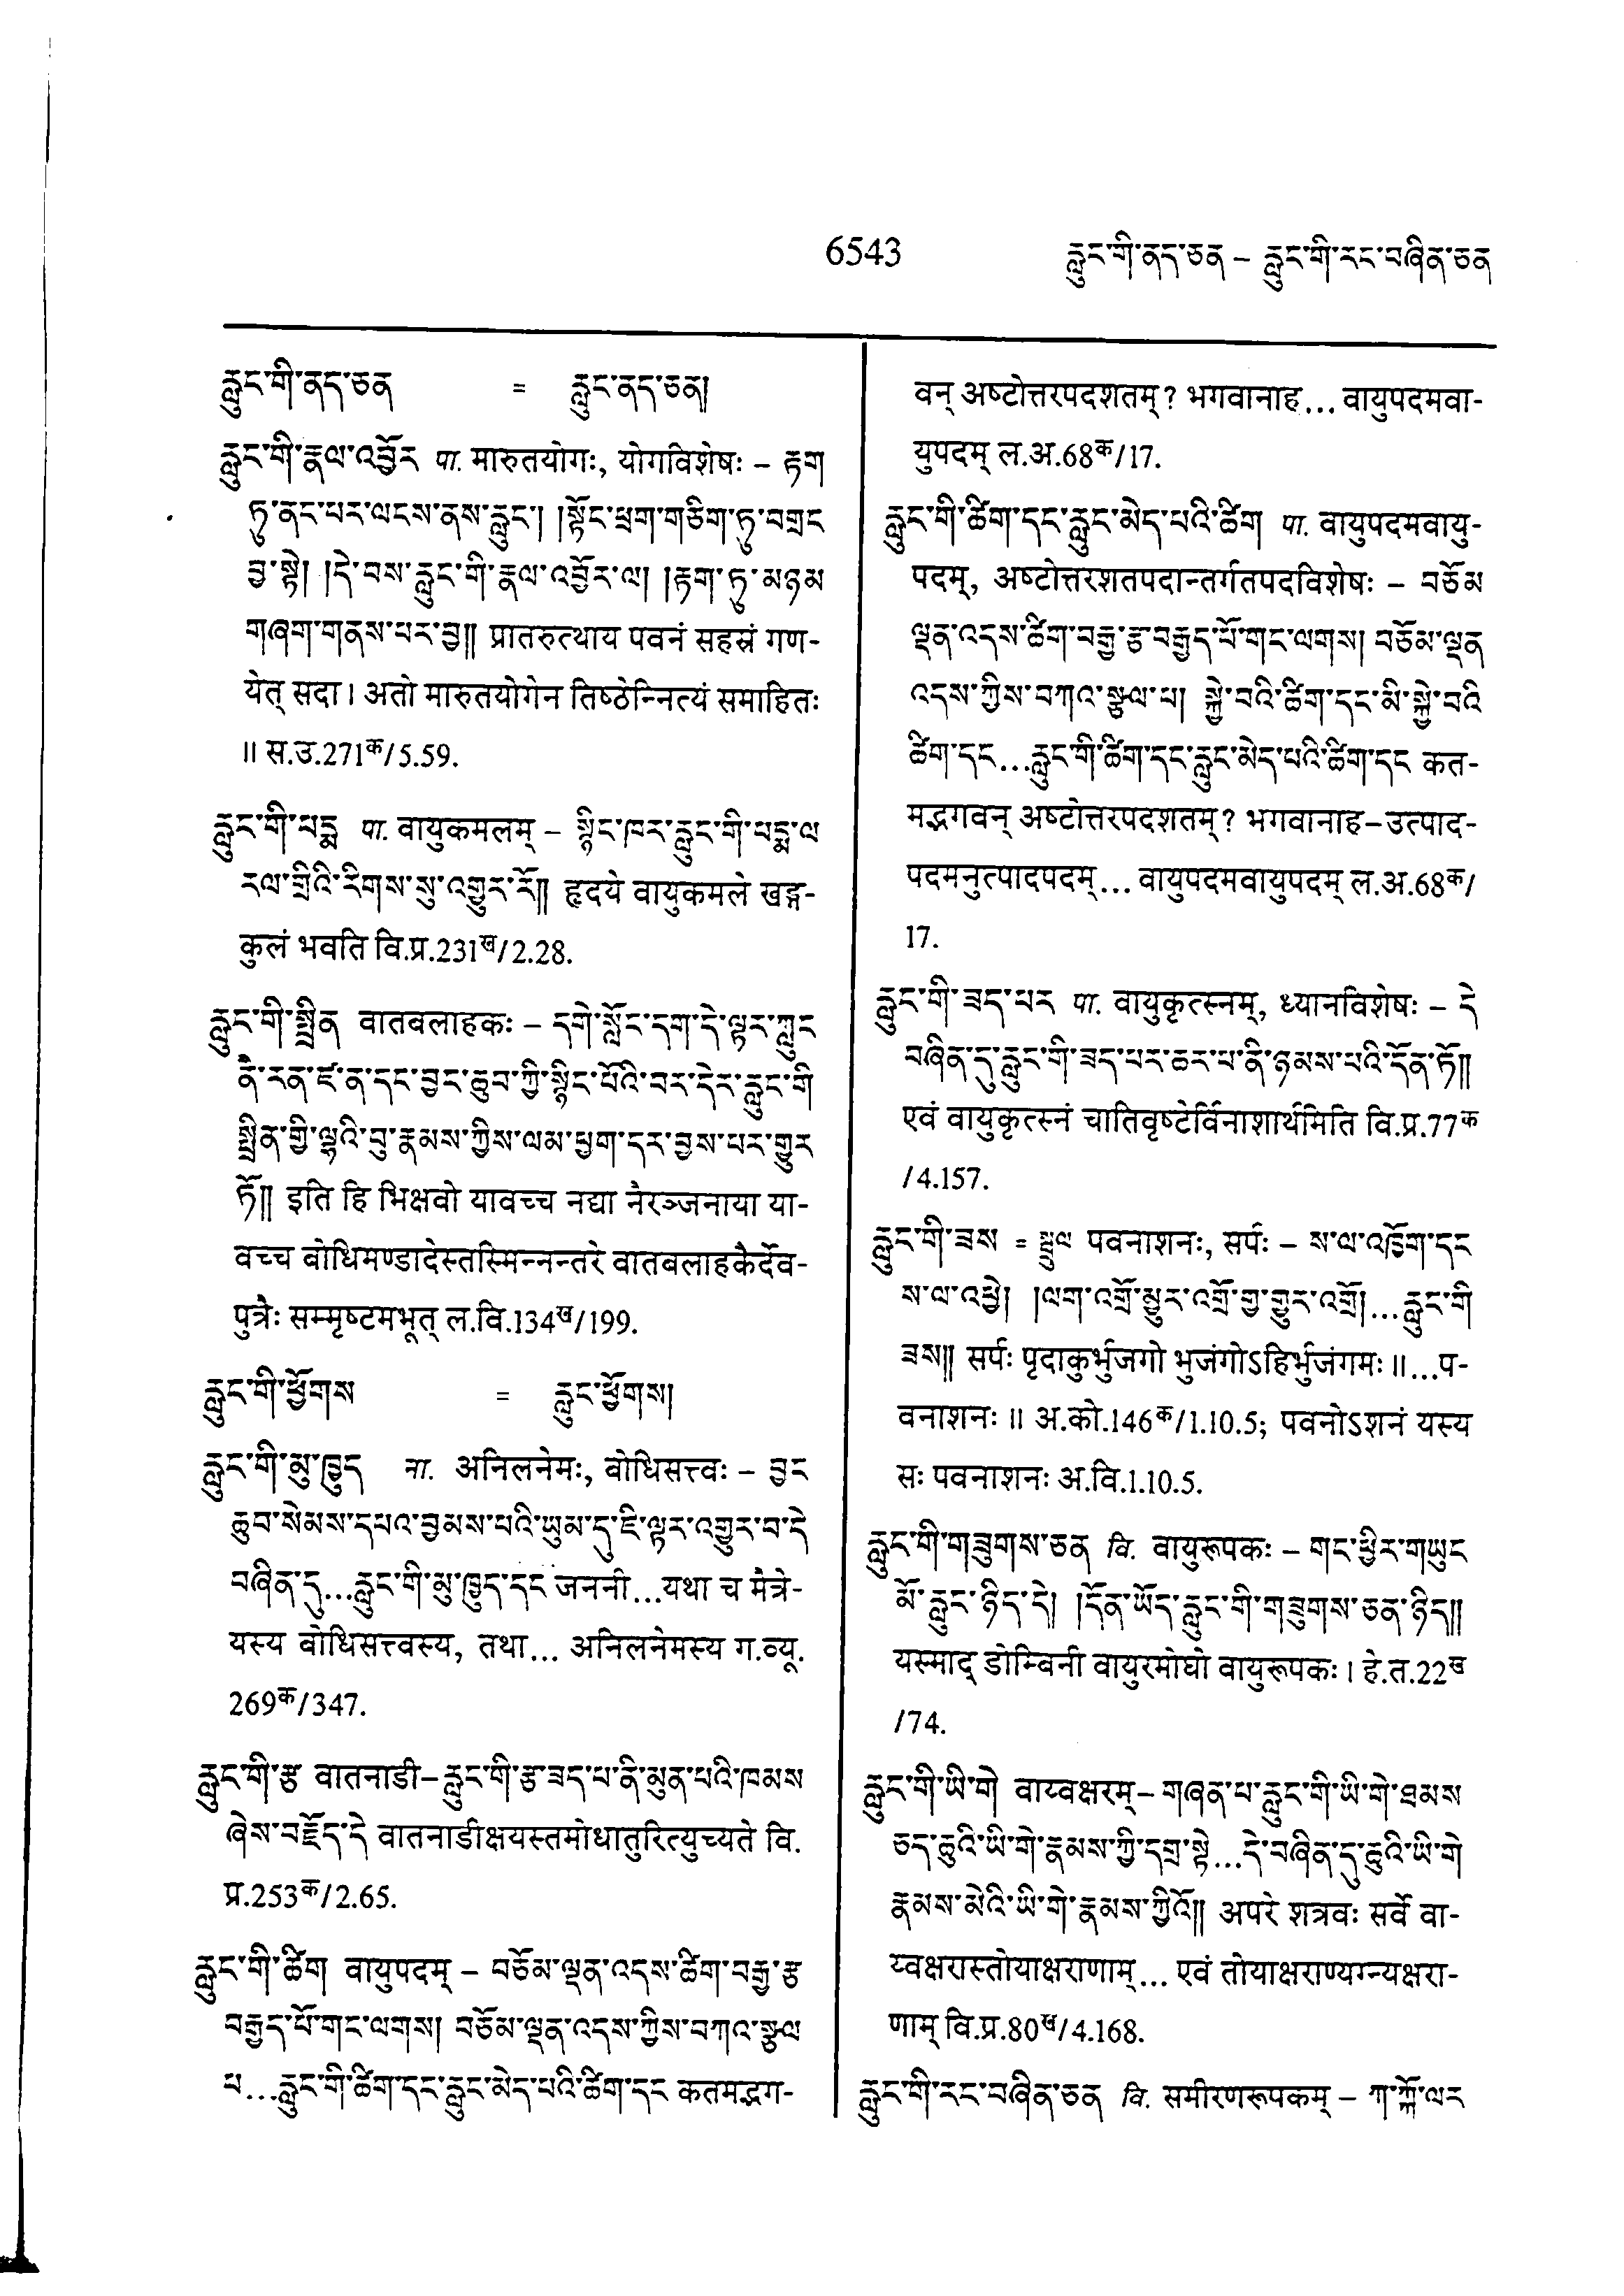 6543
རླུང་གི་ནད་ཅན – རླུང་གི་རང་བཞིན་ཅན
རླུང་གི་ནད་ཅན = རླུང་ནད་ཅན།
རླུང་གི་རྣལ་འབྱོར पा. मारुतयोगः, योगविशेषः – རྟག
ཏུ་ནང་པར་ལངས་ནས་རླུང་། །སྟོང་ཕྲག་གཅིག་ཏུ་བགྲང
བྱ་སྟེ། །དེ་བས་རླུང་གི་རྣལ་འབྱོར་ལ། །རྟག་ཏུ་མཉམ
གཞག་གནས་པར་བྱ།། प्रातरुत्थाय पवनं सहस्रं गण-
येत् सदा। अतो मारुतयोगेन तिष्ठेन्नित्यं समाहितः
॥ स.उ.271क/5.59.
རླུང་གི་པདྨ पा. वायुकमलम् – སྙིང་ཁར་རླུང་གི་པདྨ་ལ
རལ་གྲིའི་རིགས་སུ་འགྱུར་རོ།། हृदये वायुकमले खड्ग-
कुलं भवति वि.प्र.231ख/2.28.
རླུང་གི་སྤྲིན वातबलाहकः – དགེ་སློང་དག་དེ་ལྟར་ཀླུང
ནཻ་རན་ཛ་ན་དང་བྱང་ཆུབ་ཀྱི་སྙིང་པོའི་བར་དེར་རླུང་གི
སྤྲིན་གྱི་ལྷའི་བུ་རྣམས་ཀྱིས་ལམ་ཕྱག་དར་བྱས་པར་གྱུར
ཏོ།། इति हि भिक्षवो यावच्च नद्या नैरञ्जनाया या-
वच्च बोधिमण्डादेस्तस्मिन्नन्तरे वातबलाहकैर्देव-
पुत्रैः सम्मृष्टमभूत् ल.वि.134ख/199.
རླུང་གི་ཕྱོགས = རླུང་ཕྱོགས།
རླུང་གི་མུ་ཁྱུད ना. अनिलनेमः, बोधिसत्त्वः – བྱང
ཆུབ་སེམས་དཔའ་བྱམས་པའི་ཡུམ་དུ་ཇི་ལྟར་འགྱུར་བ་དེ
བཞིན་དུ...རླུང་གི་མུ་ཁྱུད་དང जननी...यथा च मैत्रे-
यस्य बोधिसत्त्वस्य, तथा... अनिलनेमस्य ग.व्यू.
269क/347.
རླུང་གི་རྩ वातनाडी–རླུང་གི་རྩ་ཟད་པ་ནི་མུན་པའི་ཁམས
ཞེས་བརྗོད་དེ वातनाडीक्षयस्तमोधातुरित्युच्यते वि.
प्र.253क/2.65.
རླུང་གི་ཚིག वायुपदम् – བཅོམ་ལྡན་འདས་ཚིག་བརྒྱ་རྩ
བརྒྱད་པོ་གང་ལགས། བཅོམ་ལྡན་འདས་ཀྱིས་བཀའ་སྩལ
པ...རླུང་གི་ཚིག་དང་རླུང་མེད་པའི་ཚིག་དང कतमद्भग-
वन् अष्टोत्तरपदशतम्? भगवानाह... वायुपदमवा-
युपदम् ल.अ.68क/17.
རླུང་གི་ཚིག་དང་རླུང་མེད་པའི་ཚིག पा. वायुपदमवायु-
पदम्, अष्टोत्तरशतपदान्तर्गतपदविशेषः – བཅོམ
ལྡན་འདས་ཚིག་བརྒྱ་རྩ་བརྒྱད་པོ་གང་ལགས། བཅོམ་ལྡན
འདས་ཀྱིས་བཀའ་སྩལ་པ། སྐྱེ་བའི་ཚིག་དང་མི་སྐྱེ་བའི
ཚིག་དང...རླུང་གི་ཚིག་དང་རླུང་མེད་པའི་ཚིག་དང कत-
मद्भगवन् अष्टोत्तरपदशतम्? भगवानाह–उत्पाद-
पदमनुत्पादपदम्... वायुपदमवायुपदम् ल.अ.68क/
17.
རླུང་གི་ཟད་པར पा. वायुकृत्स्नम्, ध्यानविशेषः – དེ
བཞིན་དུ་རླུང་གི་ཟད་པར་ཆར་པ་ནི་ཉམས་པའི་དོན་ཏོ།།
एवं वायुकृत्स्नं चातिवृष्टेर्विनाशार्थमिति वि.प्र.77क
/4.157.
རླུང་གི་ཟས = སྦྲུལ पवनाशनः, सर्पः – ས་ལ་འཁྲོག་དང
ས་ལ་འཕྱེ། །ལག་འགྲོ་མྱུར་འགྲོ་གྱ་གྱུར་འགྲོ།...རླུང་གི
ཟས།། सर्पः पृदाकुर्भुजगो भुजंगोऽहिर्भुजंगमः॥...प-
वनाशनः॥ अ.को.146क/1.10.5; पवनोऽशनं यस्य
सः पवनाशनः अ.वि.1.10.5.
རླུང་གི་གཟུགས་ཅན वि. वायुरूपकः – གང་ཕྱིར་གཡུང
མོ་རླུང་ཉིད་དེ། །དོན་ཡོད་རླུང་གི་གཟུགས་ཅན་ཉིད།།
यस्माद् डोम्बिनी वायुरमोघो वायुरूपकः। हे.त.22ख
/74.
རླུང་གི་ཡི་གེ वाय्वक्षरम्–གཞན་པ་རླུང་གི་ཡི་གེ་ཐམས
ཅད་ཆུའི་ཡི་གེ་རྣམས་ཀྱི་དགྲ་སྟེ...དེ་བཞིན་དུ་ཆུའི་ཡི་གེ
རྣམས་མེའི་ཡི་གེ་རྣམས་ཀྱིའོ།། अपरे शत्रवः सर्वे वा-
य्वक्षरास्तोयाक्षराणाम्... एवं तोयाक्षराण्यग्न्यक्षरा-
णाम् वि.प्र.80ख/4.168.
རླུང་གི་རང་བཞིན་ཅན वि. समीरणरूपकम् – ཀ་ཀྐོ་ལར